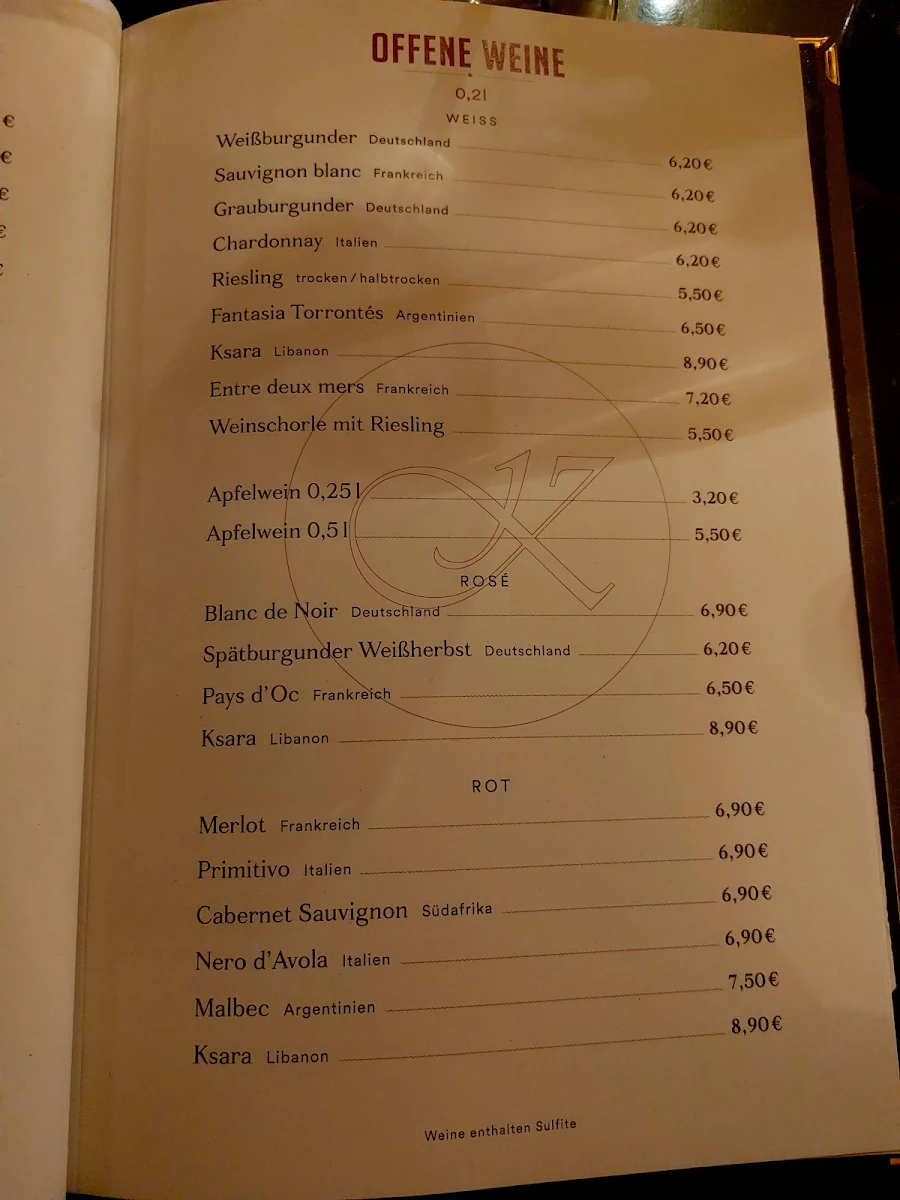 €
€
€
€
€
OFFENE WEINE
0,2l
WEISS
Weißburgunder Deutschland 6,20€
Sauvignon blanc Frankreich 6,20€
Grauburgunder Deutschland 6,20€
Chardonnay Italien 6,20€
Riesling trocken/halbtrocken 5,50€
Fantasia Torrontés Argentinien 6,50€
Ksara Libanon 8,90€
Entre deux mers Frankreich 7,20€
Weinschorle mit Riesling 5,50€
Apfelwein 0,25l 3,20€
Apfelwein 0,5l 5,50€
ROSÉ
Blanc de Noir Deutschland 6,90€
Spätburgunder Weißherbst Deutschland 6,20€
Pays d'Oc Frankreich 6,50€
Ksara Libanon 8,90€
ROT
Merlot Frankreich 6,90€
Primitivo Italien 6,90€
Cabernet Sauvignon Südafrika 6,90€
Nero d'Avola Italien 6,90€
Malbec Argentinien 7,50€
Ksara Libanon 8,90€
Weine enthalten Sulfite